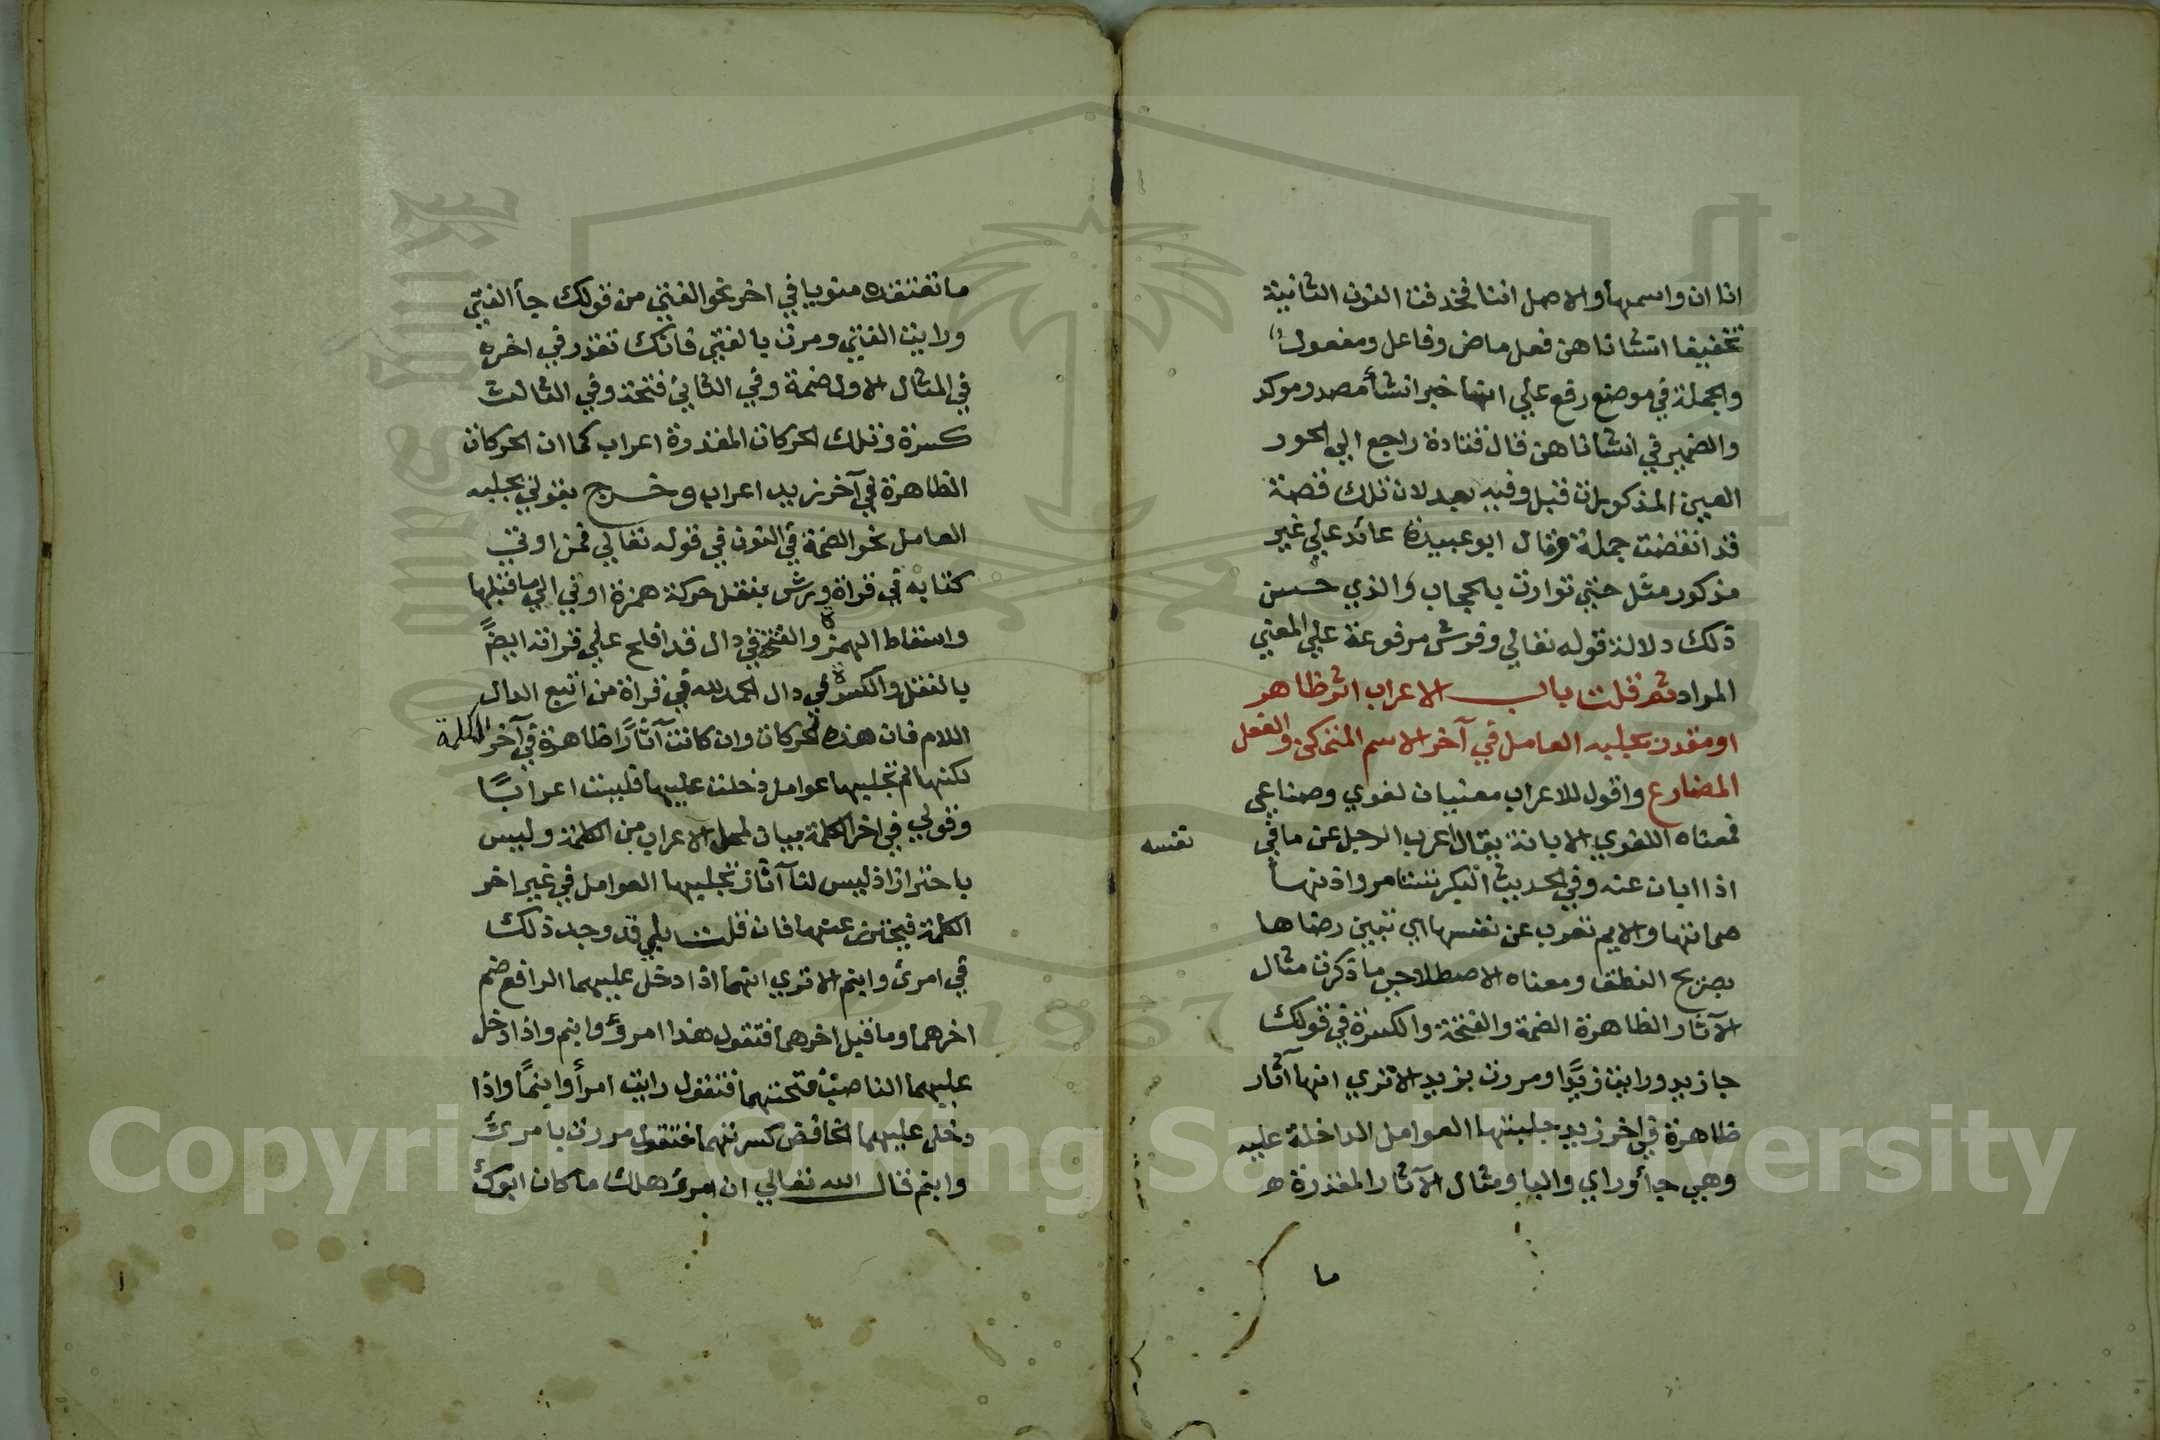 انا ان واسمها والاصل اننا فحذفت النون الثانية
تخفيفا انشاناهن فعل ماض وفاعل ومفعول
والجملة في موضع رفع على انها خبر انشأ مصدر موكد
والضمير في انشاناهن قال قتادة راجع الي الحور
العين المذكورات قبل وفيه بعد لان تلك قصة
قد انقضت جملة وقال ابو عبيدة عائد علي غير
مذكور مثل حتي توارت بالحجاب والذي حسن
ذلك دلالة قوله تعالي وفرش مرفوعة علي المعني
المراد ثم قلت باب الاعراب اثر ظاهر
او مقدر يجلبه العامل في آخر الاسم المتمكن والفعل
المضارع واقول للاعراب معنيان لغوي وصناعي
فمعناه اللغوي الابانة يقال اعرب الرجل عن ما في
نفسه
اذا ابان عنه وفي الحديث البكر تستامر واذنها
صماتها والايم تعرب عن نفسها اي تبين رضاها
بصريح النطق ومعناه الاصطلاحي ما ذكرت مثال
الآثار الظاهرة الضمة والفتحة والكسرة في قولك
جا زيد ورايت زيدًا ومررت بزيد الا تري انها آثار
ظاهرة في اخر زيد جلبتها العوامل الداخلة عليه
وهي جأ وراي والبا ومثال الآثار المقدرة
ما
ما تعتقده منويا في اخر نحو الفتي من قولك جأ الفتي
ورايت الفتي ومررت بالفتي فانك تقدر في اخره
في المثال الاول ضمة وفي الثاني فتحة وفي الثالث
كسرة وتلك الحركات المقدرة اعراب كما ان الحركات
الظاهرة في آخر زيد اعراب وخرج بقولي يجلبه
العامل نحو الضمة في النون في قوله تعالي فمن اوتي
كتابه في قراة ورش بنقل حركة همزة اوتي الي ما قبلها
واسقاط الهمزة والفتحة في دال قد افلح علي قراته ايضًا
بالنقل والكسرة في دال الحمد لله في قراة من اتبع الدال
اللام فان هذه الحركات وان كانت آثارًا ظاهرة في آخر الكلمة
لكنها لم تجلبها عوامل دخلت عليها فليست اعرابًا
وقولي في اخر الكلمة بيان لمحل الاعراب من الكلمة وليس
باحتراز اذ ليس لنا آثار تجلبها العوامل في غير اخر
الكلمة فيحترز عنها فان قلت بلي قد وجد ذلك
في امرئ وابنم الا تري انهما اذا دخل عليهما الرافع ضم
اخرهما وما قبل اخرهما فتقول هذا امرؤ وابنم واذا دخل
عليهما الناصب فتحتهما فتقول رايت امرأ وابنمًا واذا
دخل عليهما الخافض كسرتهما فتقول مررت بامرئ
وابنم قال الله تعالي ان امرؤ هلك ما كان ابوك
Copyright © King Saud University
1957